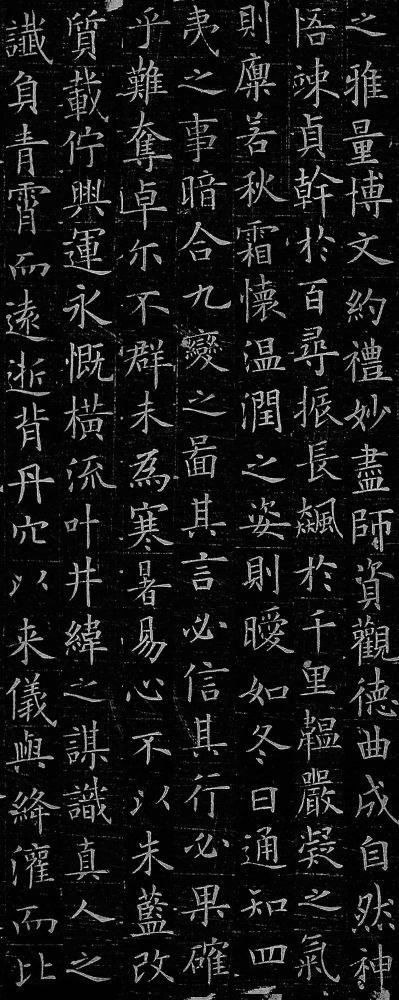 之雅量博文約禮妙盡師資觀德曲成自然神
悟竦貞幹於百尋振長飆於千里韞嚴凝之氣
則凜若秋霜懷温潤之姿則曖如冬日通知四
夷之事暗合九變之啚其言必信其行必果確
乎難奪卓尓不群未為寒暑易心不以朱藍改
質載佇興運永慨橫流叶井緯之謀識真人之
讖負青霄而遠逝背丹穴以来儀與絳灌而比